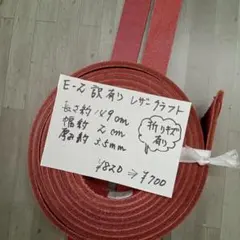 E-2 訳有り レザークラフト
長さ約 149cm
幅約 2cm
厚み約 3.5mm
折りキズ
有り
¥820⇒¥700